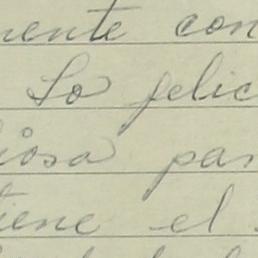 mente con
Lo felic
iosa par
tiene el